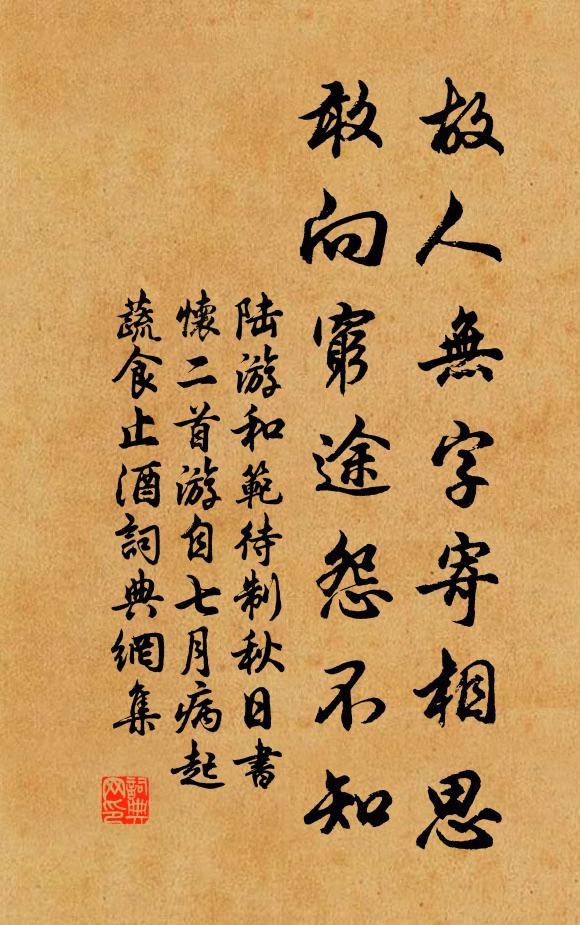 故人無字寄相思
敢向窮途怨不知
陆游和範待制秋日書
懷二首游自七月病起
蔬食止酒詞典網集
詞典网印